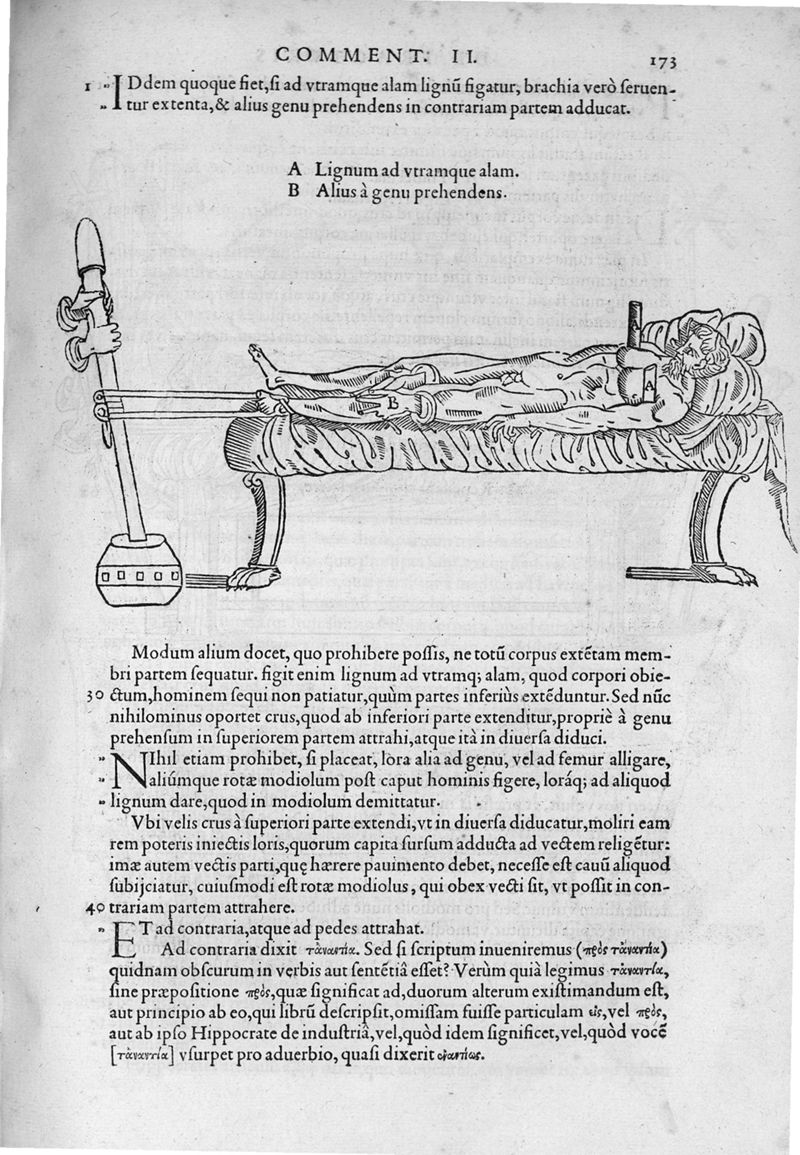 COMMENT. II. 173
1 „ IDdem quoque fiet, si ad vtramque alam lignū figatur, brachia verò seruen-
„ tur extenta, & alius genu prehendens in contrariam partem adducat.
A Lignum ad vtramque alam.
B Alius à genu prehendens.
A
A
B
Modum alium docet, quo prohibere possis, ne totū corpus extētam mem-
bri partem sequatur. figit enim lignum ad vtramq; alam, quod corpori obie-
30 ctum, hominem sequi non patiatur, quùm partes inferiùs extēduntur. Sed nūc
nihilominus oportet crus, quod ab inferiori parte extenditur, propriè à genu
prehensum in superiorem partem attrahi, atque ità in diuersa diduci.
„ NIhil etiam prohibet, si placeat, lora alia ad genu, vel ad femur alligare,
„ aliúmque rotæ modiolum post caput hominis figere, loráq; ad aliquod
„ lignum dare, quod in modiolum demittatur.
Vbi velis crus à superiori parte extendi, vt in diuersa diducatur, moliri eam
rem poteris iniectis loris, quorum capita sursum adducta ad vectem religētur:
imæ autem vectis parti, quę hærere pauimento debet, necesse est cauū aliquod
subijciatur, cuiusmodi est rotæ modiolus, qui obex vecti sit, vt possit in con-
40 trariam partem attrahere.
„ ET ad contraria, atque ad pedes attrahat.
Ad contraria dixit τἀναντία. Sed si scriptum inueniremus (πρὸς τἀναντία)
quidnam obscurum in verbis aut sentētiâ esset? Verùm quià legimus τἀναντία,
sine præpositione πρὸς, quæ significat ad, duorum alterum existimandum est,
aut principio ab eo, qui librū descripsit, omissam fuisse particulam εἰς, vel πρὸς,
aut ab ipso Hippocrate de industriâ, vel, quòd idem significet, vel, quòd vocē
[τἀναντία] vsurpet pro aduerbio, quasi dixerit ἐναντίως.